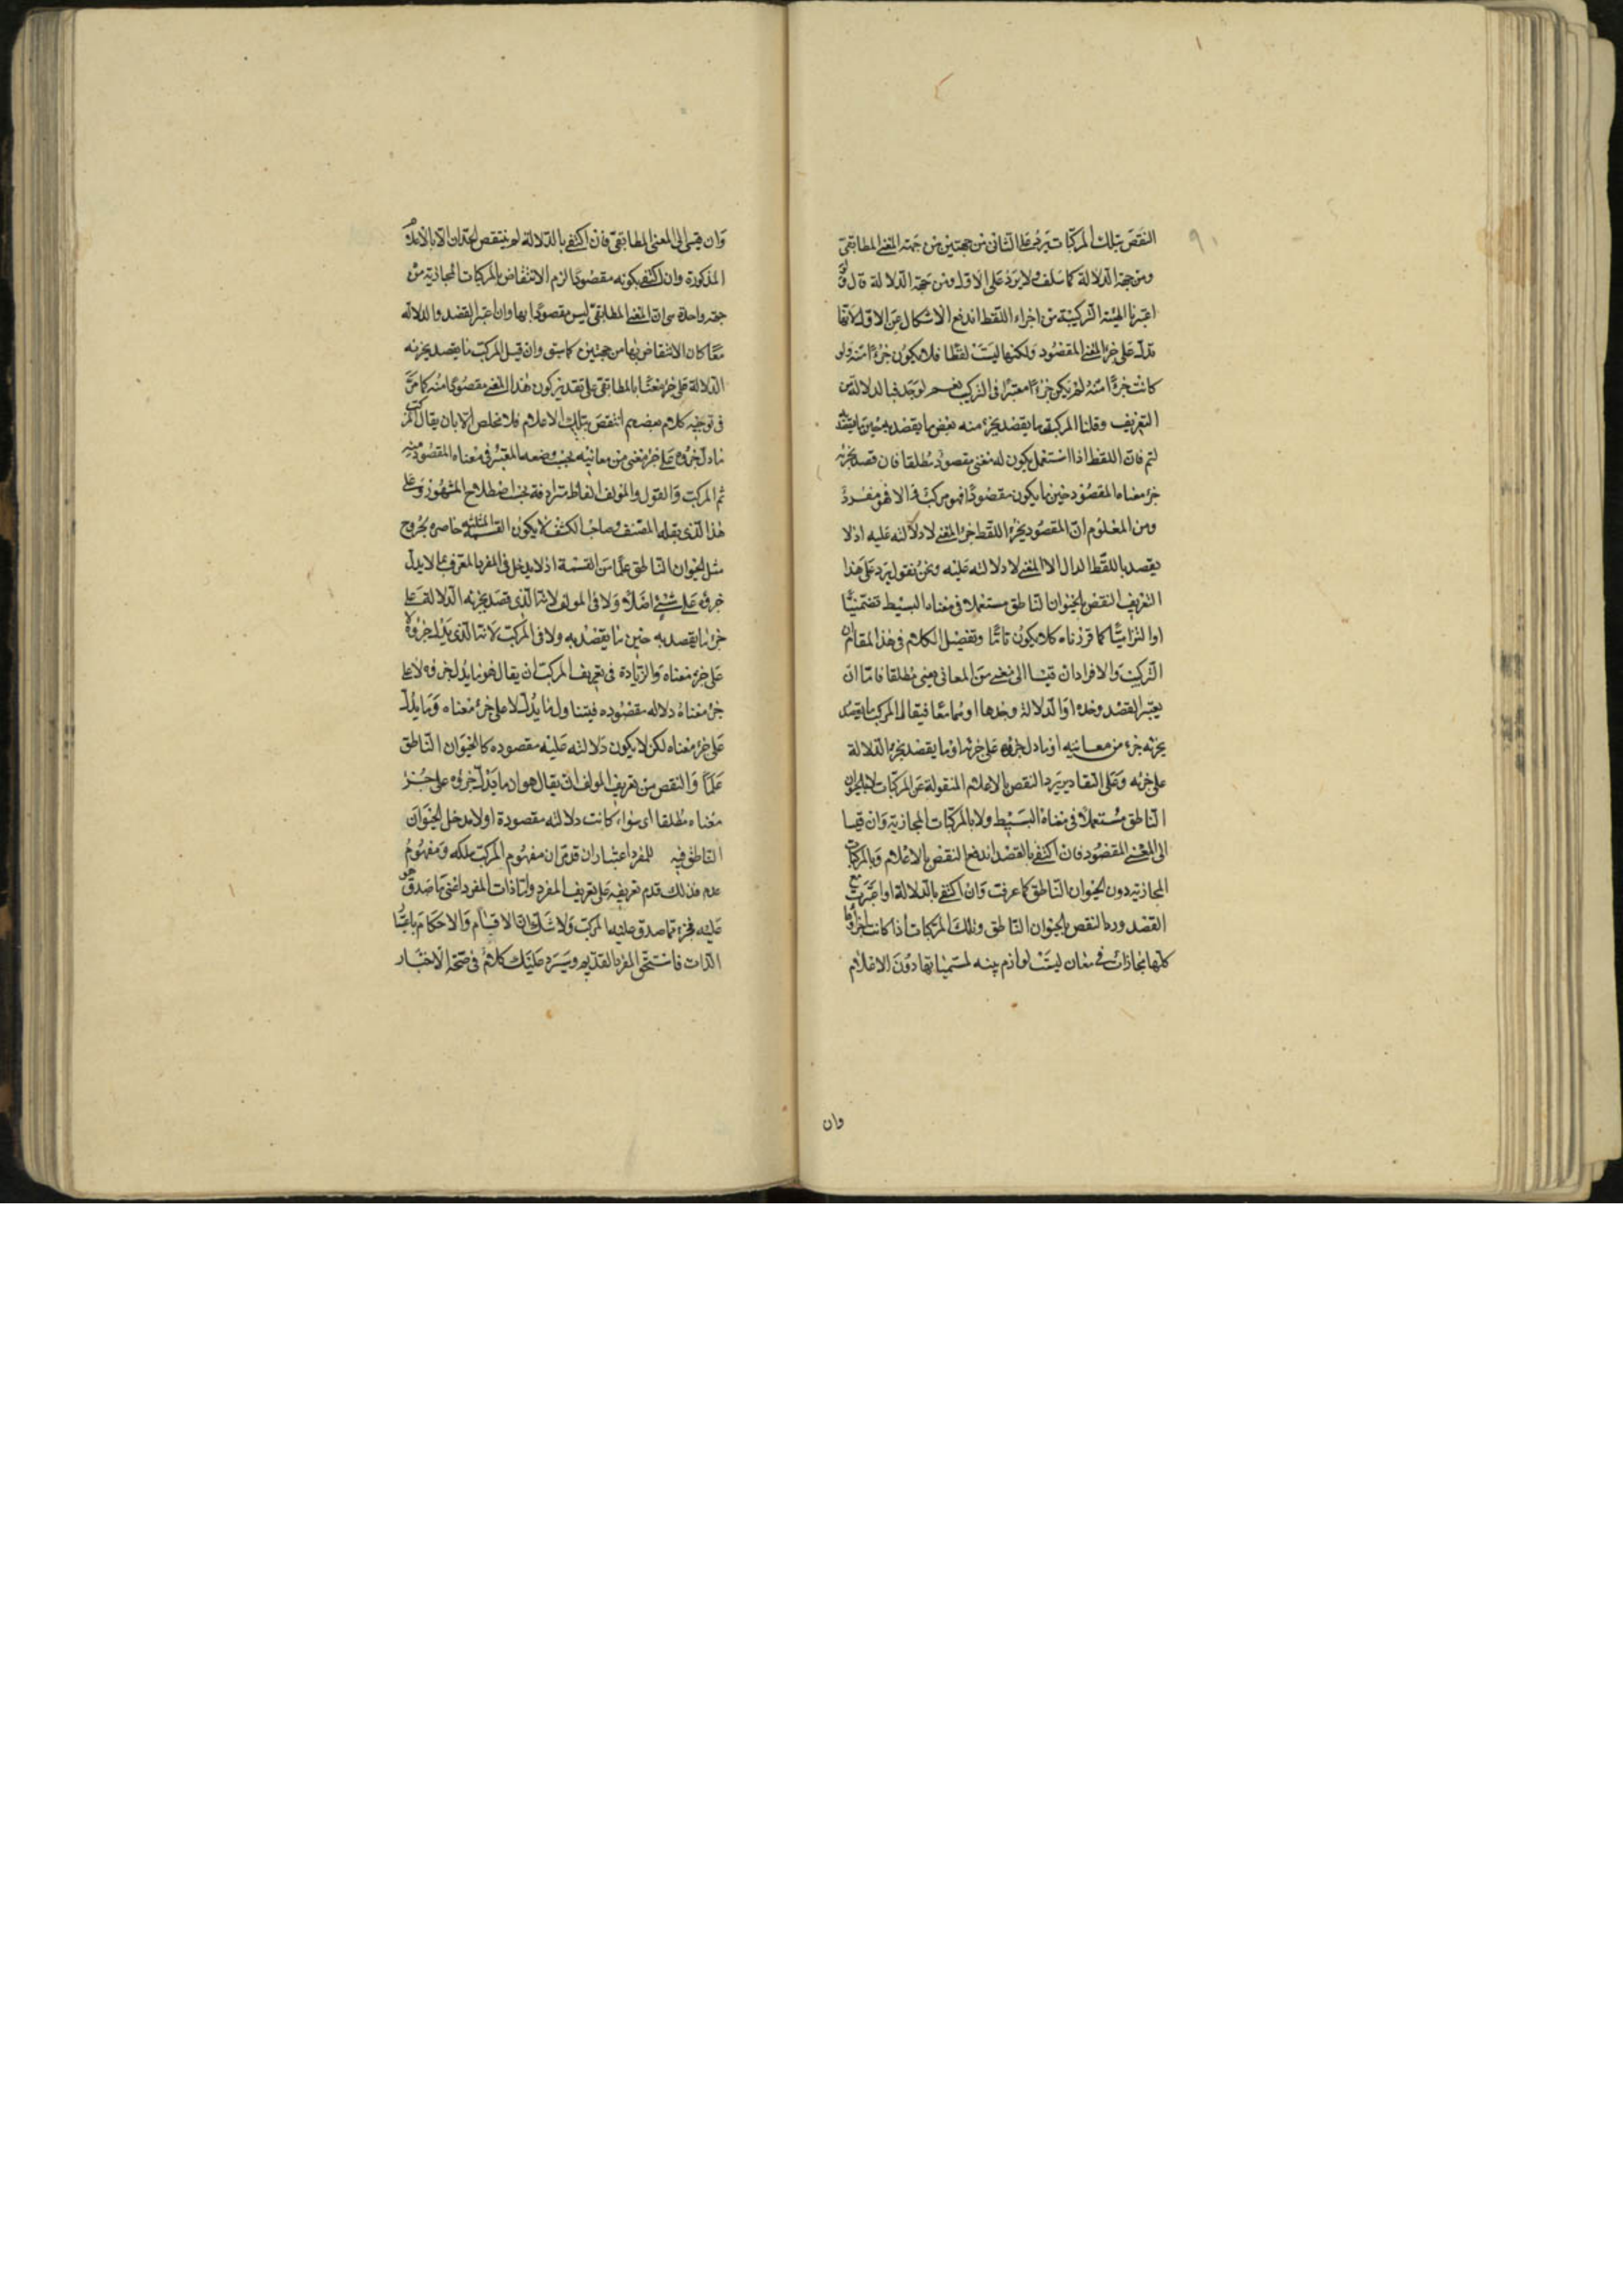 النقض بتلك المركبات يرد على الثاني من جهتين من جهة المعنى المطابقي
ومن جهة الدلالة كما سلف ولا يرد على الاول من جهة الدلالة قال ولو
اعتبرنا الهيئة التركيبية من اجزاء اللفظ اندفع الاشكال عن الاول لانها
تدل على جزء المعنى المقصود ولكنها ليست لفظا فلا يكون جزءا منه ولو
كانت جزءا منه لم يكن جزءا معتبرا في التركيب نعم لو قيد الدلالة في
التعريف وقلنا المركب ما يقصد بجزء منه بعض ما يقصد به حين ما يقصد
لتم فان اللفظ اذا استعمل يكون له معنى مقصود مطلقا فان قصد بجزئه
جزء معناه المقصود حين ما يكون مقصودا فهو مركب والا فهو مفرد
ومن المعلوم ان المقصود بجزء اللفظ جزء المعنى لا دلالته عليه اذ لا
يقصد باللفظ الدال الا المعنى لا دلالته عليه ونحن نقول يرد على هذا
التعريف النقض بالحيوان الناطق مستعملا في معناه البسيط تضمنيا
او التزاميا كما قررناه فلا يكون تاما وتفصيل الكلام في هذا المقام ان
التركيب والافراد ان قيسا الى معنى من المعاني يعني مطلقا فاما ان
يعتبر القصد وحده او الدلالة وحدها او هما معا فيقال المركب ما يقصد
بجزئه جزء من معانيه او ما دل جزؤه على جزئها او ما يقصد بجزء الدلالة
على جزئه وعلى التقادير يرد النقض بالاعلام المنقولة عن المركبات لا بالحيوان
الناطق مستعملا في معناه البسيط ولا بالمركبات المجازية وان قيسا
الى المعنى المقصود فان اكتفى بالقصد اندفع النقض بالاعلام وبالمركبات
المجازية دون الحيوان الناطق كما عرفت وان اكتفى بالدلالة او اعتبرت مع
القصد ورد النقض بالحيوان الناطق وتلك المركبات اذا كانت اجزاؤها
كلها مجازات في معان ليست لوازم بينه لمسمياتها دون الاعلام
وان
وان قيس الى المعنى المطابقي فان اكتفى بالدلالة لم ينتقض الحدان الا بالاعلام
المذكورة وان اكتفى بكونه مقصودا لزم الانتقاض بالمركبات المجازية من
جهة واحدة هي ان المعنى المطابقي ليس مقصودا بها وان اعتبر القصد والدلالة
معا كان الانتقاض بها من جهتين كما سبق وان قيل المركب ما يقصد بجزئه
الدلالة على جزء معناه المطابقي على تقدير كون هذا المعنى مقصودا منه كما مر
في توجيه كلام بعضهم انتقض بتلك الاعلام فلا مخلص الا بان يقال المركب
ما دل جزؤه على جزء معنى من معانيه بحسب وضعه المعتبر في معناه المقصود منه
ثم المركب والقول والمؤلف الفاظ مترادفة بحسب اصطلاح المشهور وعلى
هذا الذي نقله المصنف وصاحب الكشف لا يكون القسمة المثلثة حاصرة لخروج
مثل الحيوان الناطق علما من القسمة اذ لا يدخل في المفرد المعرف بما لا يدل
جزؤه على شيء اصلا ولا في المولف لانه الذي قصد بجزئه الدلالة على
جزء ما يقصد به حين ما يقصد به ولا في المركب لانه الذي يدل جزؤه لا
على جزء معناه والزيادة في تعريف المركب ان يقال هو ما يدل جزؤه لا على
جزء معناه دلالة مقصوده فيتناول ما يدل لا على جزء معناه وما يدل
على جزء معناه لكن لا يكون دلالته عليه مقصوده كالحيوان الناطق
علما والنقص من تعريف المولف ان يقال هو ان ما يدل جزؤه على جزء
معناه مطلقا اي سواء كانت دلالته مقصودة اولا يدخل الحيوان
الناطق فيه للمفرد اعتباران قد مر ان مفهوم المركب ملكه ومفهوم
عدم فلذلك قدم تعريفه على تعريف المفرد واما ذات المفرد اعني ما صدق هو
عليه فجزء مما صدق عليه المركب ولا شك ان الاقسام والاحكام باعتبار
الذات فاستحق المفرد التقديم وسيرد عليك كلام في صحة الاخبار